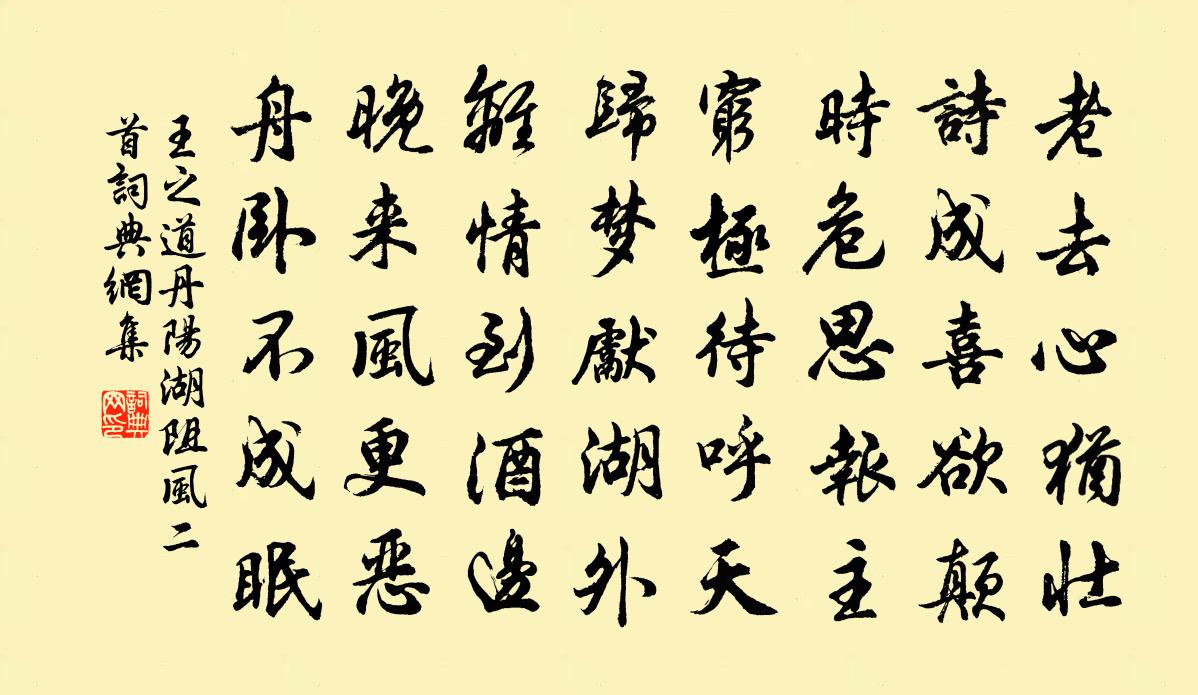 老去心犹壮
詩成喜欲顛
時危思報主
窮極待呼天
歸梦獻湖外
離情到酒邊
晚来風更恶
舟卧不成眠
王之道丹陽湖阻風二
首詞典網集
詞典
网印